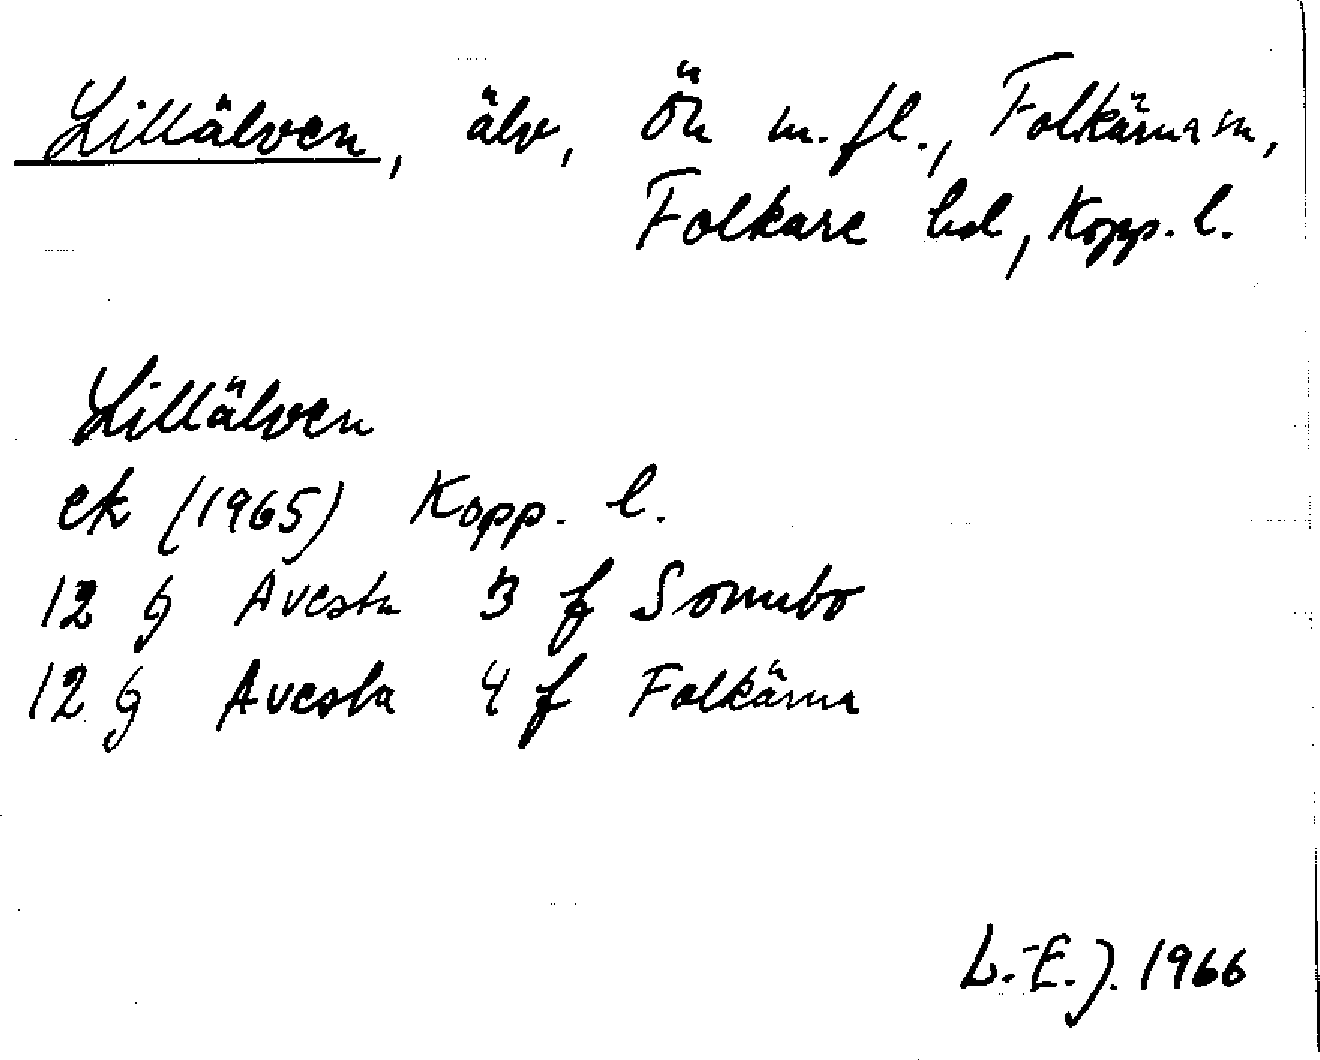 Lillälven, älv, Ön m.fl., Folkärna sn,
Folkare hd, Kopp. l.
Lillälven
ek (1965) Kopp. l.
12 G Avesta 3 f Sonnbo
12 G Avesta 4 f Folkärna
L.-E.J. 1966